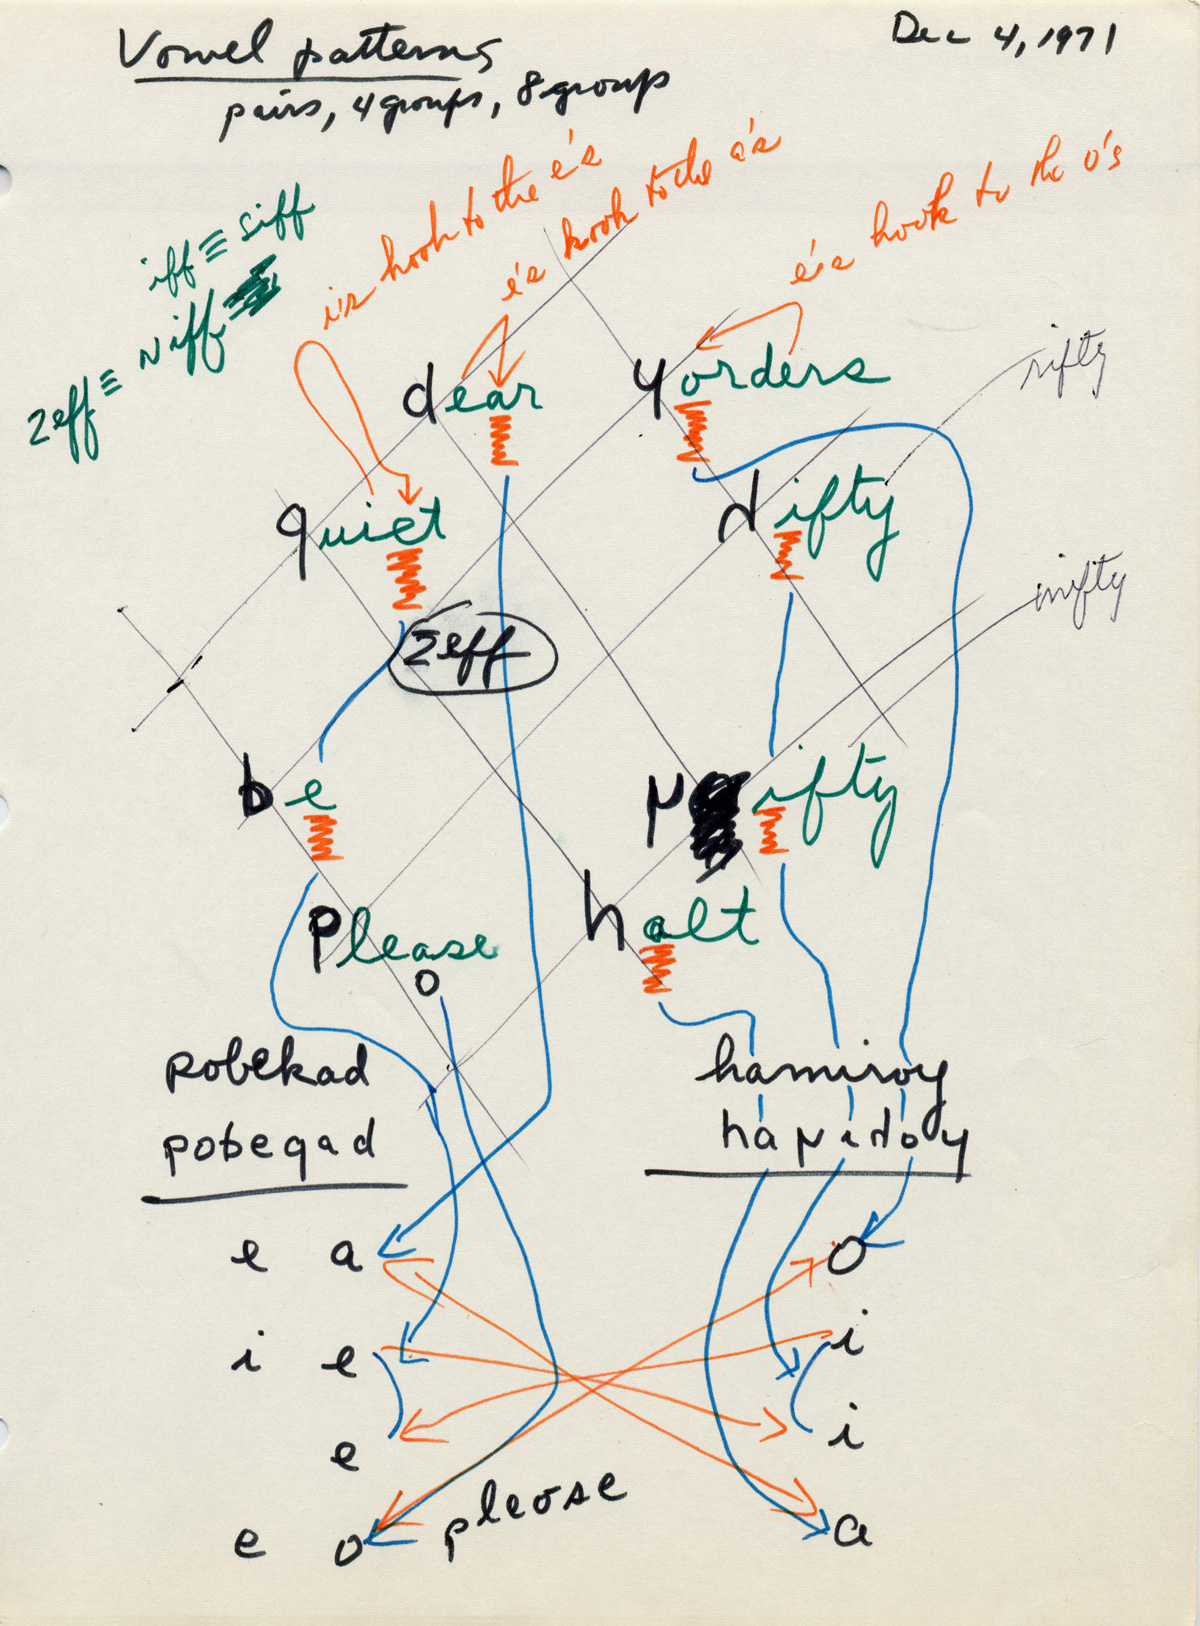 Vowel patterns
Dec 4, 1971
pairs, 4 groups, 8 group
i's hook to the e's
e's hook to the a's
e's hook to the o's
iff ≡ siff
zeff ≡ niff
dear
yorders
rifty
quiet
difty
mifty
zeff
be
ifty
please
o
halt
pobekad
hamiroy
pobeqad
e a
o
i e
i
e
i
e o
pleose
a